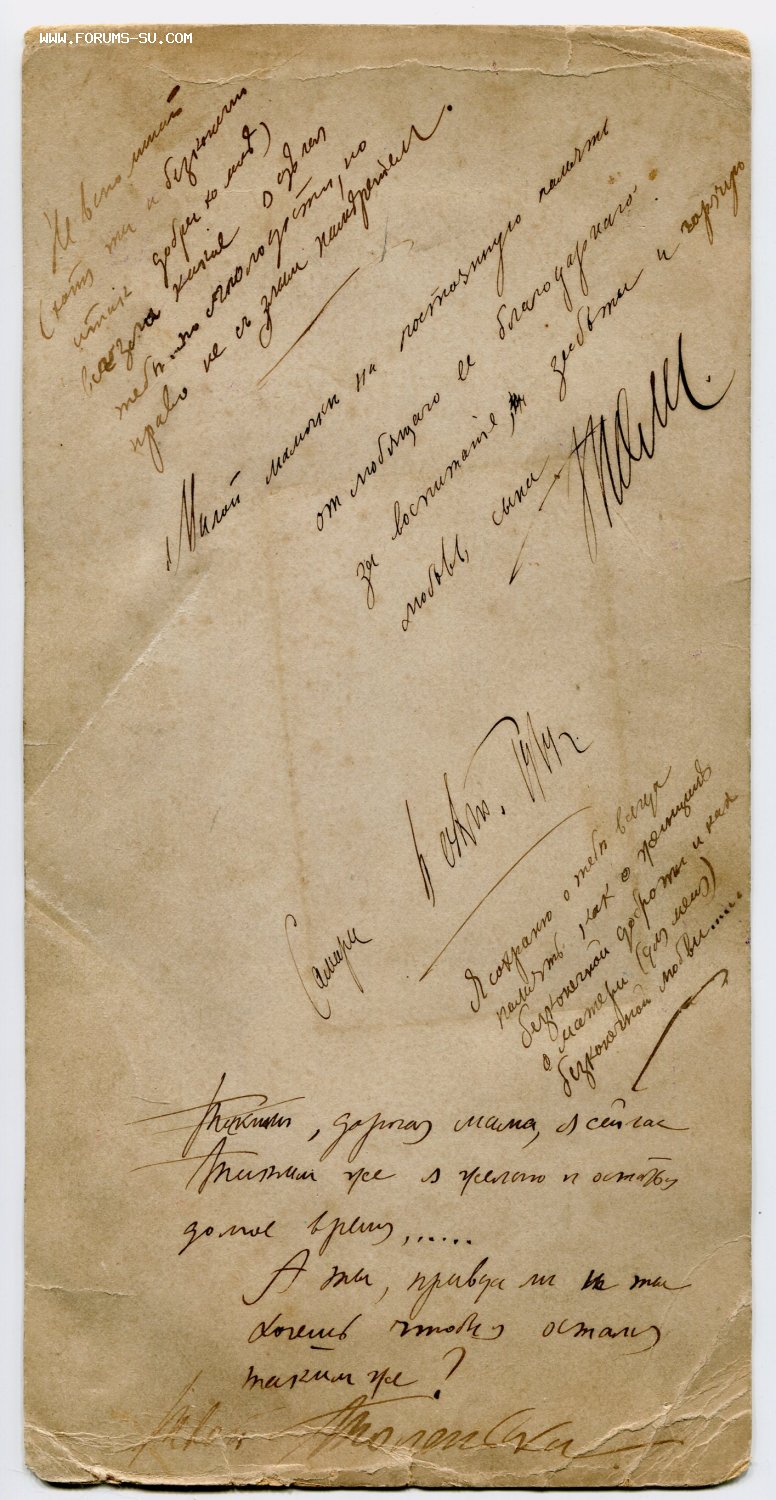 WWW.FORUMS-SU.COM
Не вспоминай
(хотя ты и безконечно
добра ко мне)
тебѣ
право не съ злым намѣрением.
"Милой мамочки на постоянную память
от любящаго ее благодарнаго
за воспитание, заботы и горячую
любовь, сына
Самара
окт.
Я сохраню о тебѣ всегда
память как о женщинѣ
безконечной доброты и как
о матери (для меня)
безконечной любви.....
, дорогая мама, я сейчас
Таким же я желаю и остаться
долгое время,......
А ты, правда ли ты
хочешь чтобы я остался
таким же?
Твой